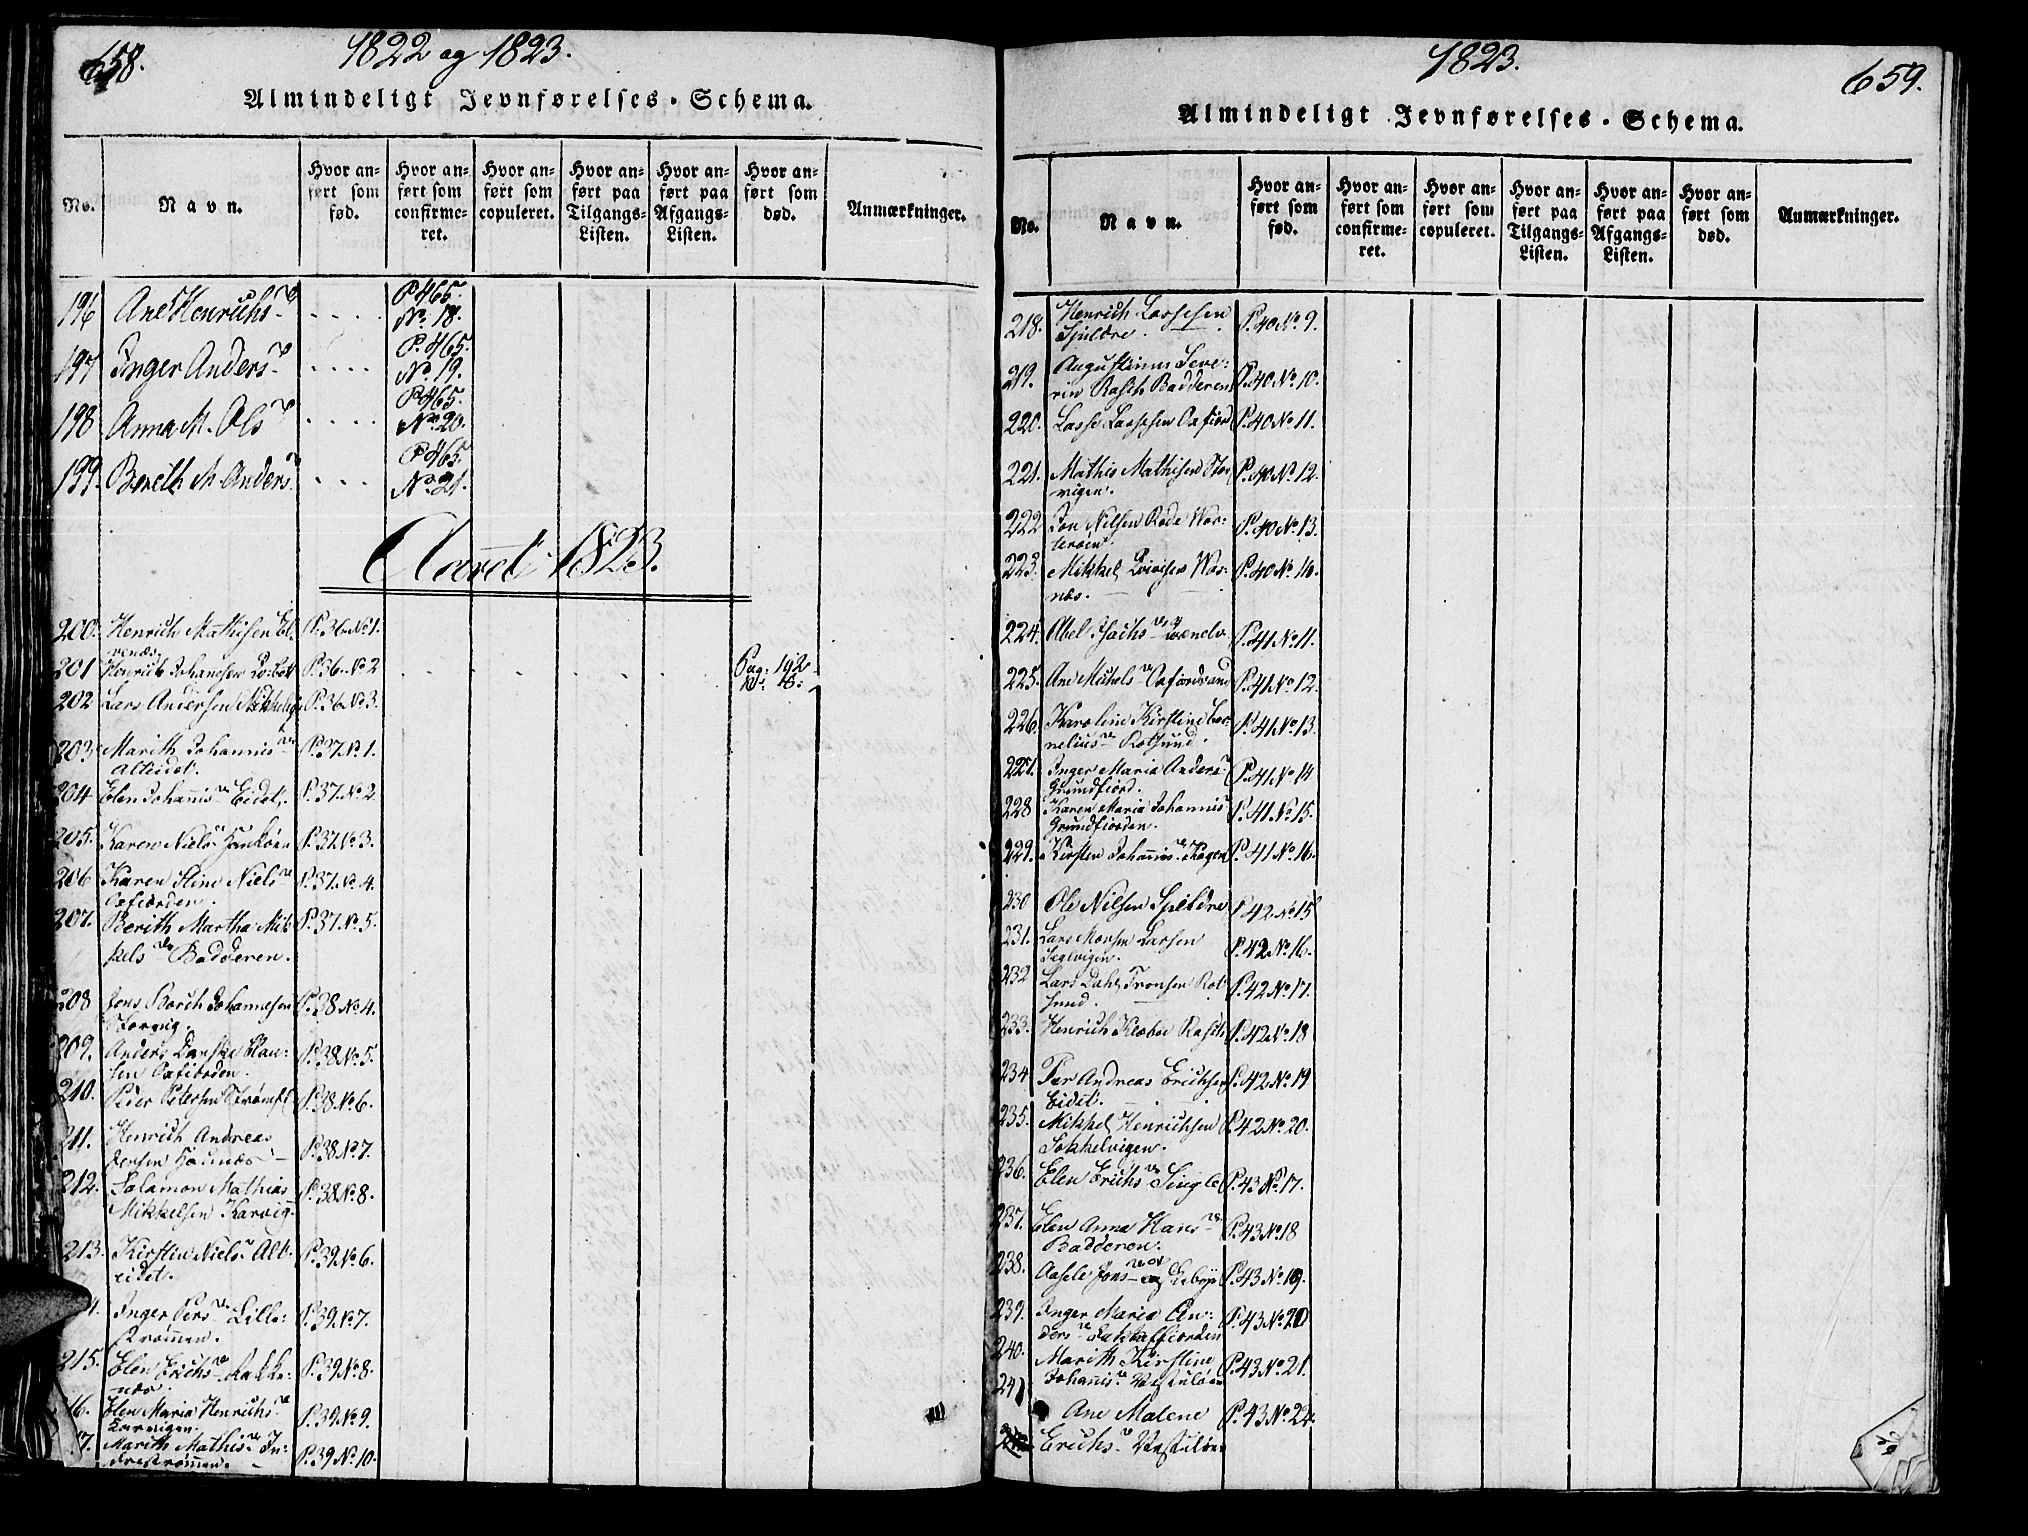 658.
1822 og 1823.
Almindeligt Jevnførelses-Schema.
No.
Navn.
Hvor anført som fød.
Hvor anført som confirmeret.
Hvor anført som copuleret.
Hvor anført paa Tilgangs-Listen.
Hvor anført paa Afgangs-Listen.
Hvor anført som død.
Anmærkninger.
196 Ane Henrichs P 465. No. 18.
197 Inger Anders P. 465. No. 19.
198 Anna M. Ols P 465. No 20.
199. Berith M. Anders P 465. No. 21.
Aaret 1823.
200. Henrich Mathisen P. 36 No 1.
201 Henrich Johannesen P. 36. No 2 Pag. 192
202 Lars Andersen P. 36 No 3.
203 Marith Johannis P. 37. No 1.
Alteidet.
204 Elen Johannis Eidet. P. 37. No 2.
205. Karen Niels P. 37. No 3.
206 Karen Stine Niels P. 37. No 4.
Oxfiorden.
207. Berith Martha Mik- P. 37 No 5.
kels Badderen.
208 Jens Borch Johannesen P. 38 No 4.
Storvig.
209. Anders Clau- P. 38 No 5.
sen Oxfiorden.
210. Peder Petersen P. 38 No 6.
211. Henrich Andreas
Jensen P. 38 No 7.
212. Salamon Mathias P. 38 No 8.
Mikkelsen Karvig.
213. Kirstin Niels Alt- P. 39 No 6.
eidet.
4. Inger Pers Lille- P. 39 No 7.
strømen.
215. Elen Erichs P. 39 No 8.
næs.
16. Elen Maria Henrichs P. 39. No 9.
7. Marith Mathis In-
drestrømen. P. 39 No 10.
1823.
659.
Almindeligt Jevnførelses-Schema.
No.
Navn.
Hvor anført som fød.
Hvor anført som confirmeret.
Hvor anført som copuleret.
Hvor anført paa Tilgangs-Listen.
Hvor anført paa Afgangs-Listen.
Hvor anført som død.
Anmærkninger.
218. Henrich Lassesen P. 40 No 9.
Spildre.
219. Augustinus Seve- P. 40 No 10.
rin Rasch Badderen
220. Lasse Lassesen Oxfiord P. 40 No 11.
221. Mathis Mathisen Stor- P. 40 No 12.
vigen.
222 Jon Nilsen P. 40 No 13.
223. Mikkel P. 40 No 14.
næs.
224. Abel Isachs P. 41 No 11.
225. Ane Michels P. 41 No 12.
226. Karoline Kirstine Cor- P. 41 No 13.
nelius Rotsund.
227. Inger Maria Anders P. 41 No 14
Grundfiord.
228 Karen Maria Johannis P. 41 No 15.
Grundfiorden.
229. Kirsten Johannis P. 41 No 16.
230 Ole Nilsen Spildre P. 42 No 15
231. Lars Monsen Larsen P. 42 No 16.
Seglvigen.
232 Lars Dahl Tronsen Rot- P. 42 No 17.
sund.
233. Henrich Klæboe Rasch P. 42 No 18
234 Per Andreas Erichsen P. 42 No 19
Eidet.
235. Mikkel Henrichsen P. 42 No 20.
Sokkelvigen.
236. Elen Erichs P. 43 No 17.
237. Elen Anna Hans P. 43 No 18
Badderen.
238. Jons P. 43 No 19.
239. Inger Maria An- P. 43 No 20
ders
240. Marith Kirstine P. 43 No 21.
Johannis
241 Ane Malene P. 43 No 22.
Erichs